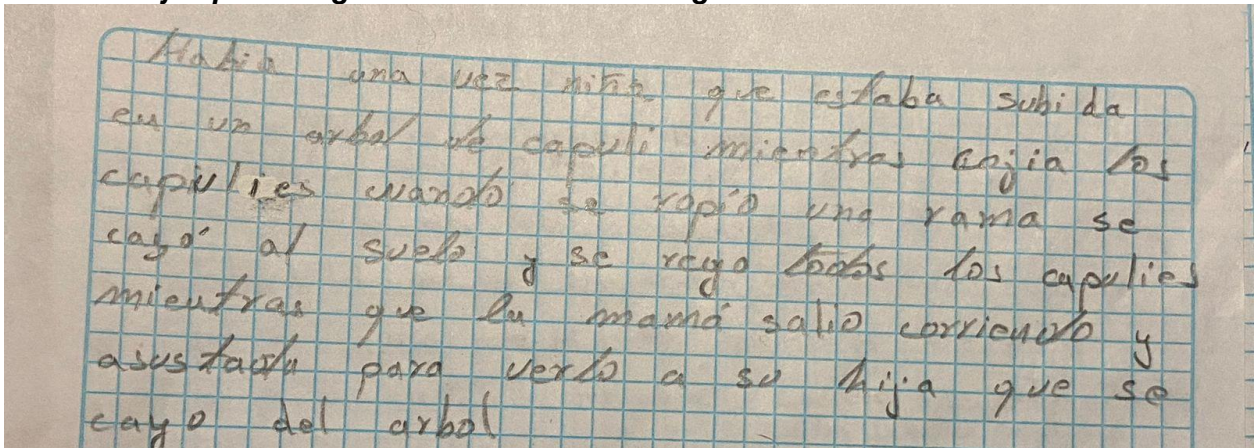 Habia una vez niña que estaba subida
en un arbol de capuli mientras cojia los
capulies cuando se ropio una rama se
cayó al suelo y se rego todos los capulies
mientras que la mamá salio corriendo y
asustada para verlo a su hija que se
cayo del arbol